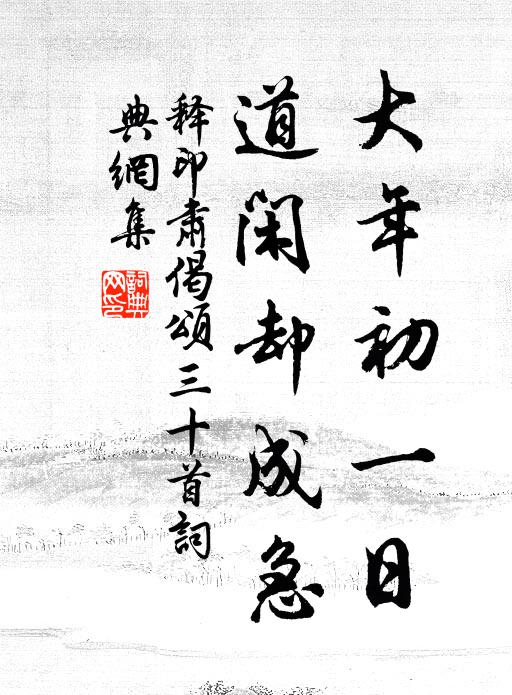 大年初一日
道闲却成急
释印肃偈頌三十首詞
典網集
詞典网印